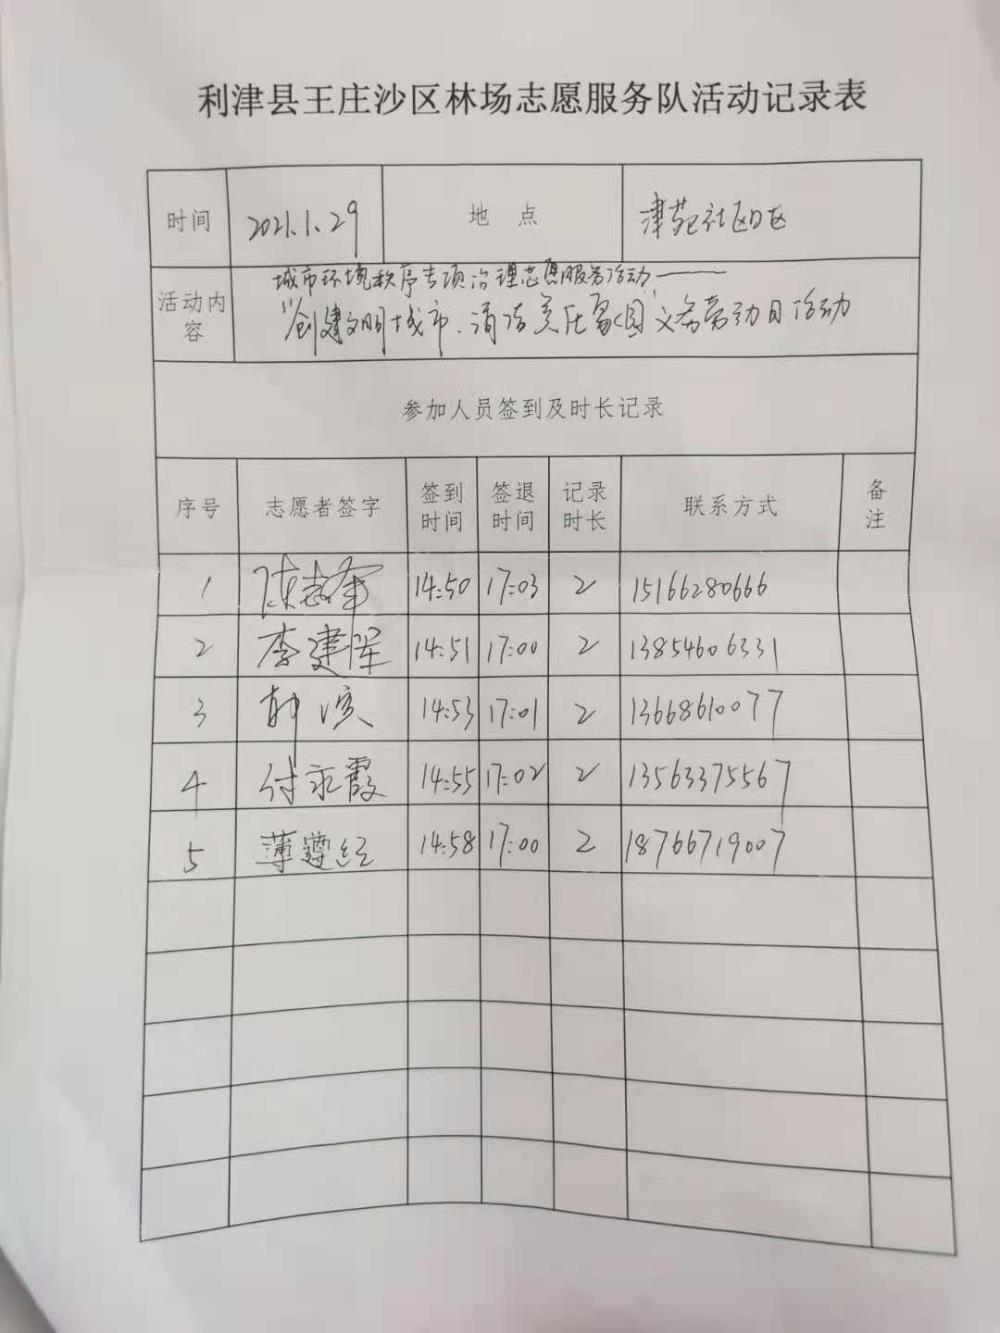 利津县王庄沙区林场志愿服务队活动记录表
时间 2021.1.29 地 点 津苑社区
活动内容 城市环境秩序专项治理志愿服务活动——
"创建文明城市、清洁美化家园"义务劳动日活动
参加人员签到及时长记录
序号 志愿者签字 签到时间 签退时间 记录时长 联系方式 备注
1 陈志军 14:50 17:03 2 15166280666
2 李建军 14:51 17:00 2 13854606331
3 韩滨 14:53 17:01 2 13668610077
4 付永霞 14:55 17:02 2 13563375567
5 薄 14:58 17:00 2 18766719007